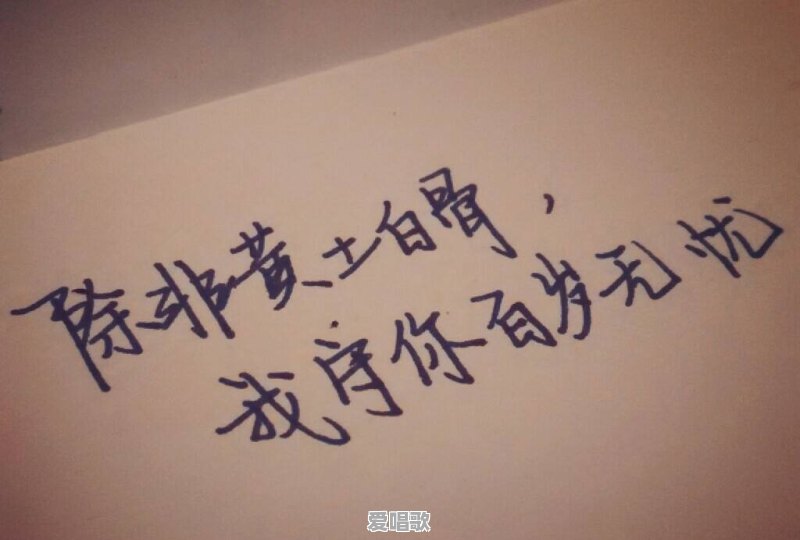 除非黄土白骨，
我守你百岁无忧
爱唱歌